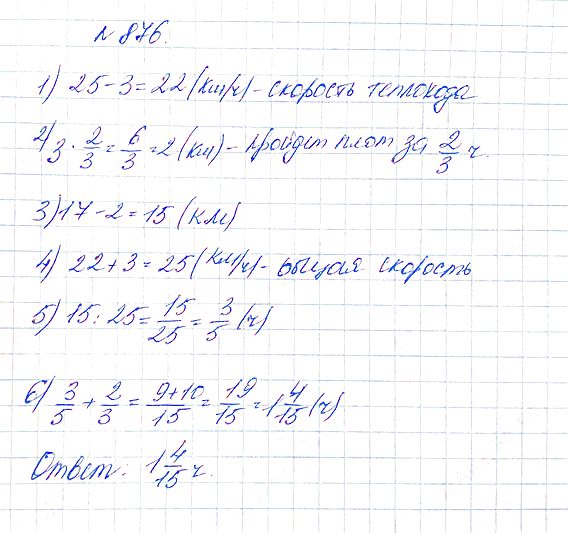 № 876.
1) 25 - 3 = 22 (км/ч) - скорость теплохода
2) 3 · 2/3 = 6/3 = 2 (км) - пройдет плот за 2/3 ч.
3) 17 - 2 = 15 (км)
4) 22 + 3 = 25 (км/ч) - общая скорость
5) 15 : 25 = 15/25 = 3/5 (ч)
6) 3/5 + 2/3 = 9+10/15 = 19/15 = 1 4/15 (ч)
Ответ: 1 4/15 ч.